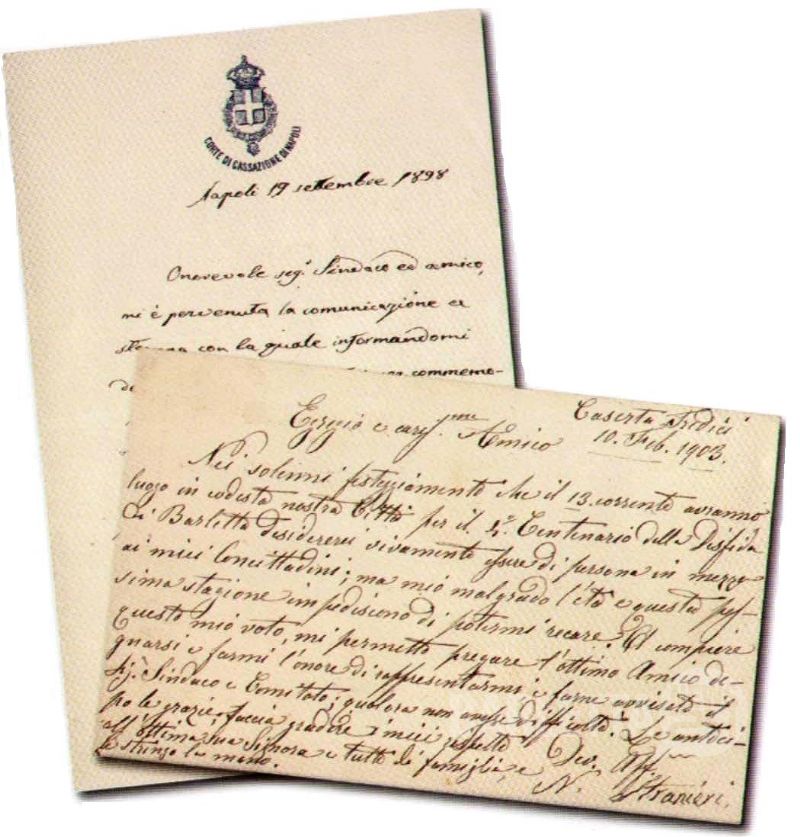 CORTE DI CASSAZIONE DI NAPOLI
Napoli 19 settembre 1898
Onorevole sig.r Sindaco ed amico,
mi è pervenuta la comunicazione a
stampa con la quale informandomi
commemo-
Caserta Sedici
10. Feb. 1903.
Egregio e cariss.mo Amico
Nei solenni festeggiamenti che il 13. corrente avranno
luogo in codesta nostra Città per il 4.° Centenario della Disfida
di Barletta desidererei vivamente essere di persona in mezzo
ai miei Concittadini; ma mio malgrado l'età e questa pes-
sima stagione impediscono di potermi recare. A compiere
questo mio voto, mi permetto pregare l'ottimo Amico de-
gnarsi e farmi l'onore di rappresentarmi e farne avvisato il
Sig. Sindaco e Comitato; qualora non avesse difficoltà. Le antici-
po le grazie, faccia gradire i miei rispetti
all'ottima sua Signora e tutti di famiglia, e Dev. Aff.mo
le stringo la mano. N.